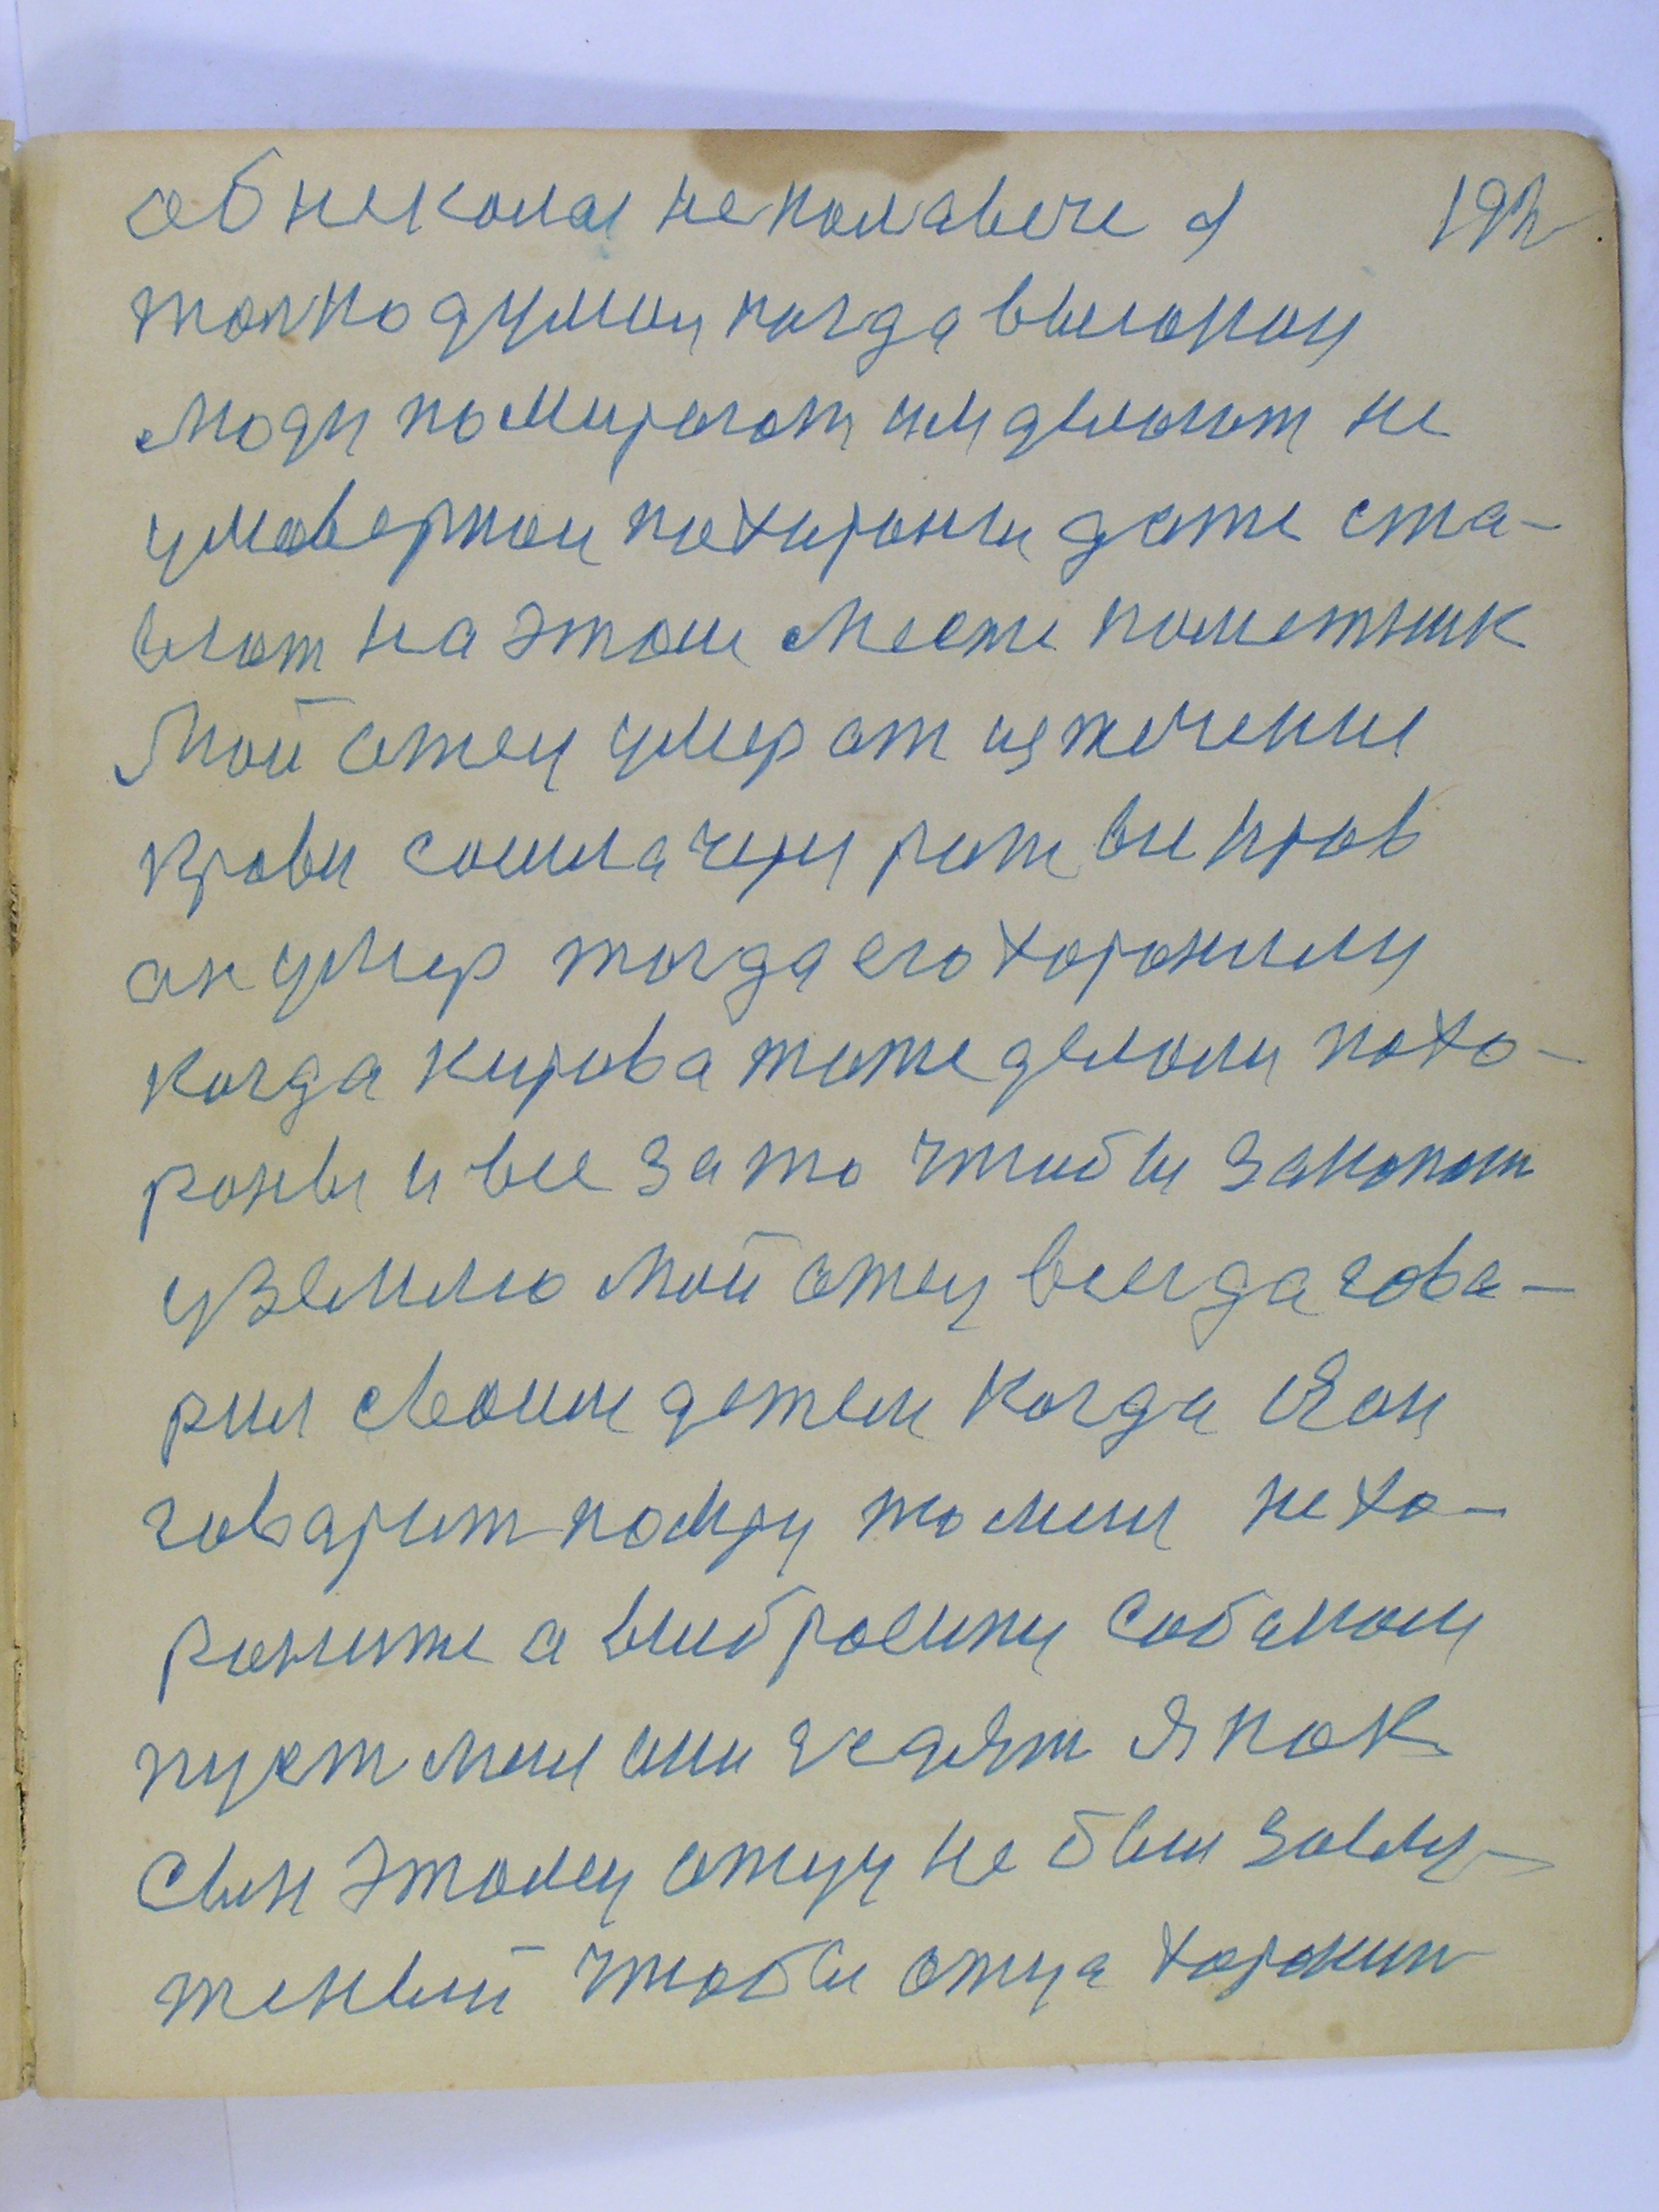 об некомы не
толко думаи когда високои
люди помирают им делают не
умоверкои похирони даже ста-
влот на этом месте пометник
Мой отец умер от изтечение
крови сошла чери рот ви кров
он умер тогда его хоронили
когда кирова тоже делали похо-
роны и все зато чтоби закопат
узЕмлю мой отец всигда гова-
рил своим детем когда Яон
говарит помру то мине не хо-
роните а вибросити собаком
пуст мня они Я как
сын этому отцу не был заслу-
женый чтоби отца хоронит